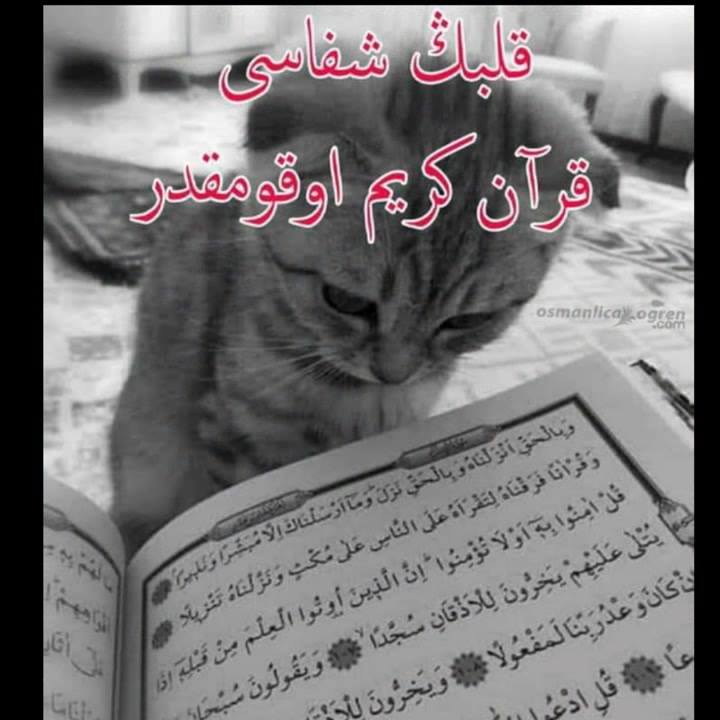 قلبڭ شفاسی
قرآن كریم اوقومقدر
osmanlicaogren
.com
وَبِالْحَقِّ اَنْزَلْنَاهُ وَبِالْحَقِّ نَزَلَ وَمَٓا اَرْسَلْنَاكَ اِلَّا مُبَشِّرًا وَنَذِيرًا
وَقُرْاٰنًا فَرَقْنَاهُ لِتَقْرَاَهُ عَلَى النَّاسِ عَلٰى مُكْثٍ وَنَزَّلْنَاهُ تَنْزِيلًا
قُلْ اٰمِنُوا بِهِٓ اَوْ لَا تُؤْمِنُوا اِنَّ الَّذِينَ اُوتُوا الْعِلْمَ مِنْ قَبْلِهِٓ اِذَا
يُتْلٰى عَلَيْهِمْ يَخِرُّونَ لِلْاَذْقَانِ سُجَّدًا وَيَقُولُونَ سُبْحَانَ
كَانَ وَعْدُ رَبِّنَا لَمَفْعُولًا وَيَخِرُّونَ
قُلِ ادْعُوا